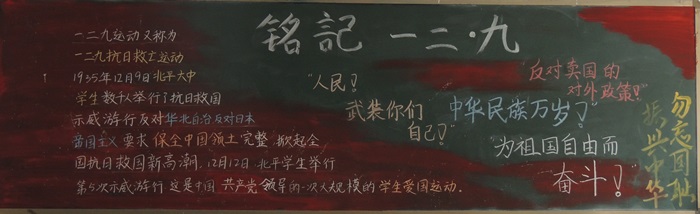 铭記 一二·九
一二九运动又称为
一二九抗日救亡运动
1935年12月9日北平大中
学生数千人举行了抗日救国
示威游行反对华北自治反对日本
帝国主义 要求 保全中国领土完整 掀起全
国抗日救国新高潮，12月12日，北平学生举行
第5次示威游行 这是中国 共产党 领导的一次大规模的 学生爱国运动.
"人民!
武装你们
自己!"
"反对卖国的
对外政策!"
中华民族万岁!"
"为祖国自由而
奋斗!
勿忘国耻
振兴中华